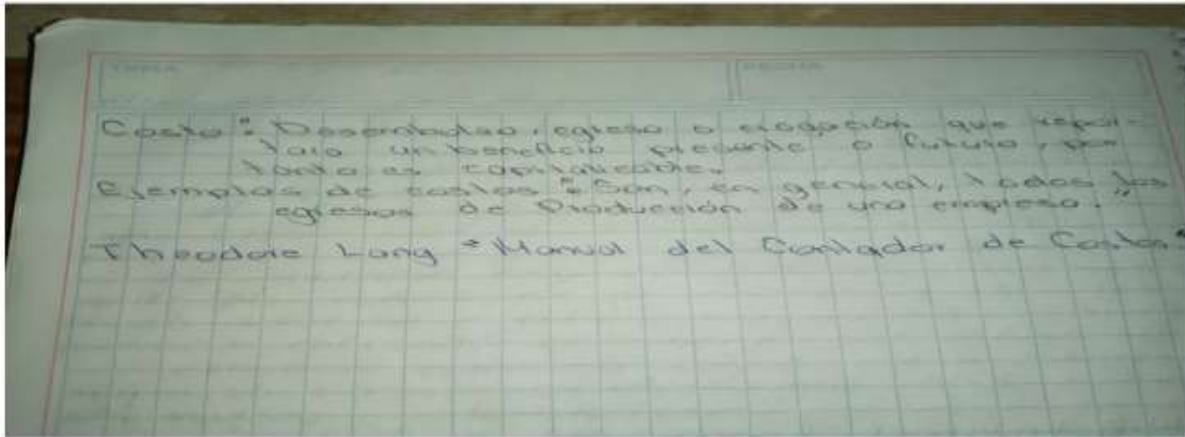 TEMA
FECHA
Costo: Desembolso, egreso o erogación que repor-
tará un beneficio presente o futuro, por
tanto es capitalizable.
Ejemplos de costos: Son, en general, todos los
egresos de Producción de una empresa."
Theodore Lang "Manual del Contador de Costos"